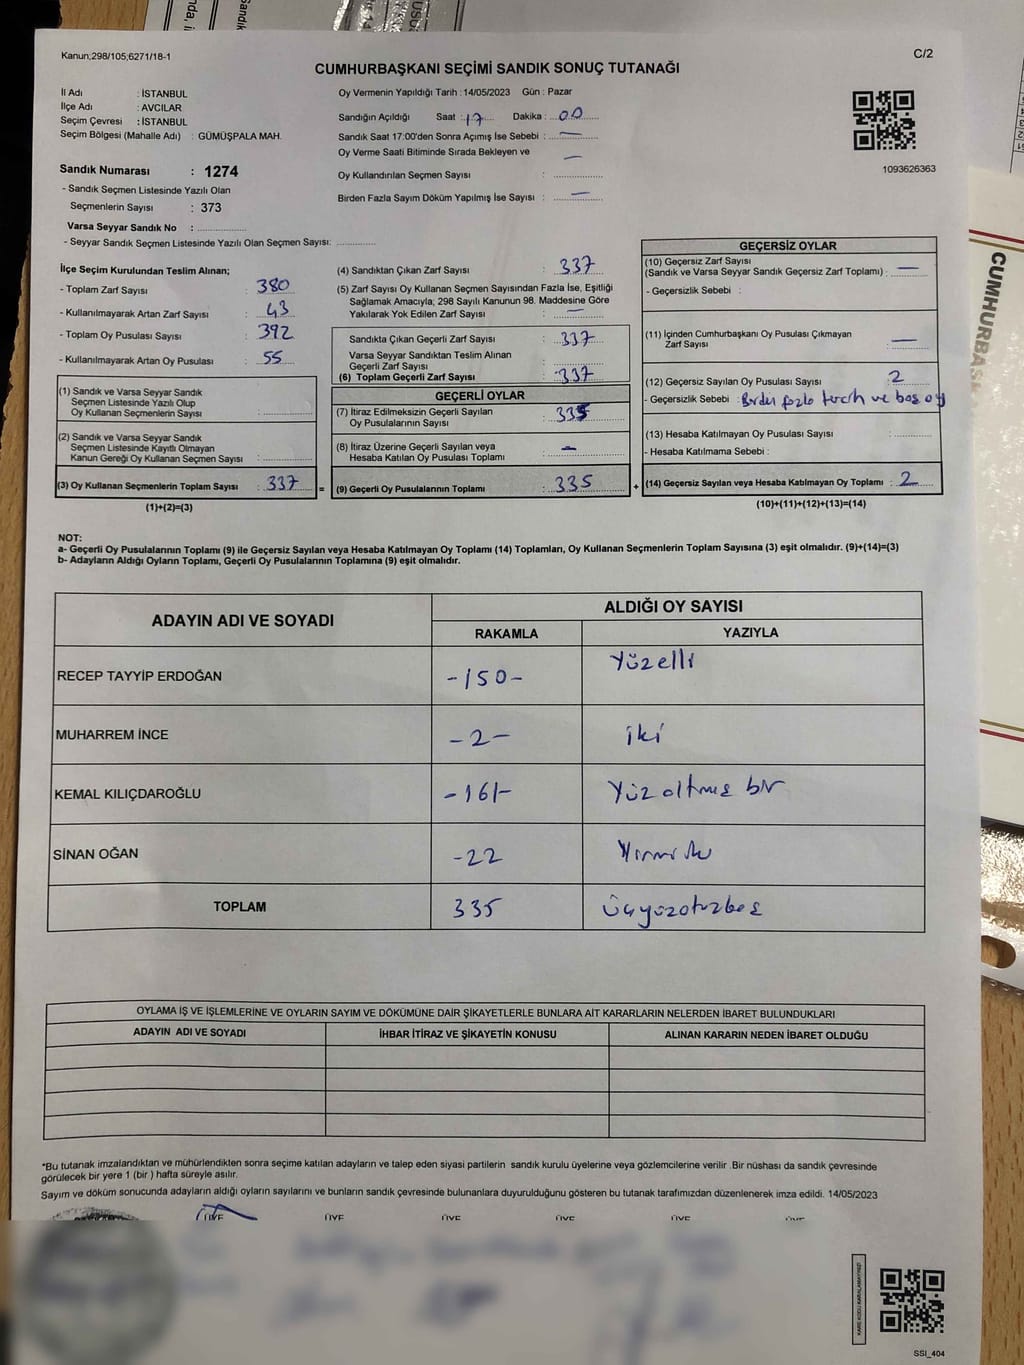 Kanun;298/105;6271/18-1
C/2
CUMHURBAŞKANI SEÇİMİ SANDIK SONUÇ TUTANAĞI
İl Adı : İSTANBUL
İlçe Adı : AVCILAR
Seçim Çevresi : İSTANBUL
Seçim Bölgesi (Mahalle Adı) : GÜMÜŞPALA MAH.
Sandık Numarası : 1274
- Sandık Seçmen Listesinde Yazılı Olan
Seçmenlerin Sayısı : 373
Varsa Seyyar Sandık No : ..............
- Seyyar Sandık Seçmen Listesinde Yazılı Olan Seçmen Sayısı: ............
Oy Vermenin Yapıldığı Tarih :14/05/2023 Gün : Pazar
Sandığın Açıldığı Saat : 17 Dakika : 00
Sandık Saat 17:00'den Sonra Açımış İse Sebebi : —
Oy Verme Saati Bitiminde Sırada Bekleyen ve —
Oy Kullandırılan Seçmen Sayısı : ..............
Birden Fazla Sayım Döküm Yapılmış İse Sayısı : —
1093626363
İlçe Seçim Kurulundan Teslim Alınan;
- Toplam Zarf Sayısı : 380
- Kullanılmayarak Artan Zarf Sayısı : 43
- Toplam Oy Pusulası Sayısı : 392
- Kullanılmayarak Artan Oy Pusulası : 55
(1) Sandık ve Varsa Seyyar Sandık
Seçmen Listesinde Yazılı Olup
Oy Kullanan Seçmenlerin Sayısı : ..............
(2) Sandık ve Varsa Seyyar Sandık
Seçmen Listesinde Kayıtlı Olmayan
Kanun Gereği Oy Kullanan Seçmen Sayısı : ..............
(3) Oy Kullanan Seçmenlerin Toplam Sayısı : 337 =
(1)+(2)=(3)
(4) Sandıktan Çıkan Zarf Sayısı : 337
(5) Zarf Sayısı Oy Kullanan Seçmen Sayısından Fazla İse, Eşitliği
Sağlamak Amacıyla; 298 Sayılı Kanunun 98. Maddesine Göre
Yakılarak Yok Edilen Zarf Sayısı : —
Sandıkta Çıkan Geçerli Zarf Sayısı : 337
Varsa Seyyar Sandıktan Teslim Alınan
Geçerli Zarf Sayısı : ..............
(6) Toplam Geçerli Zarf Sayısı : 337
GEÇERLİ OYLAR
(7) İtiraz Edilmeksizin Geçerli Sayılan
Oy Pusulalarının Sayısı : 335
(8) İtiraz Üzerine Geçerli Sayılan veya
Hesaba Katılan Oy Pusulası Toplamı : —
(9) Geçerli Oy Pusulalarının Toplamı : 335 +
GEÇERSİZ OYLAR
(10) Geçersiz Zarf Sayısı
(Sandık ve Varsa Seyyar Sandık Geçersiz Zarf Toplamı) : —
- Geçersizlik Sebebi :
(11) İçinden Cumhurbaşkanı Oy Pusulası Çıkmayan
Zarf Sayısı : —
(12) Geçersiz Sayılan Oy Pusulası Sayısı : 2
- Geçersizlik Sebebi : Birden fazla tercih ve boş oy
(13) Hesaba Katılmayan Oy Pusulası Sayısı : ............
- Hesaba Katılmama Sebebi :
(14) Geçersiz Sayılan veya Hesaba Katılmayan Oy Toplamı : 2
(10)+(11)+(12)+(13)=(14)
NOT:
a- Geçerli Oy Pusulalarının Toplamı (9) ile Geçersiz Sayılan veya Hesaba Katılmayan Oy Toplamı (14) Toplamları, Oy Kullanan Seçmenlerin Toplam Sayısına (3) eşit olmalıdır. (9)+(14)=(3)
b- Adayların Aldığı Oyların Toplamı, Geçerli Oy Pusulalarının Toplamına (9) eşit olmalıdır.
ADAYIN ADI VE SOYADI
ALDIĞI OY SAYISI
RAKAMLA YAZIYLA
RECEP TAYYİP ERDOĞAN -150- Yüzelli
MUHARREM İNCE -2- iki
KEMAL KILIÇDAROĞLU -161- Yüz altmış bir
SİNAN OĞAN -22 Yirmi iki
TOPLAM 335 Üçyüzotuzbeş
OYLAMA İŞ VE İŞLEMLERİNE VE OYLARIN SAYIM VE DÖKÜMÜNE DAİR ŞİKAYETLERLE BUNLARA AİT KARARLARIN NELERDEN İBARET BULUNDUKLARI
ADAYIN ADI VE SOYADI İHBAR İTİRAZ VE ŞİKAYETİN KONUSU ALINAN KARARIN NEDEN İBARET OLDUĞU
*Bu tutanak imzalandıktan ve mühürlendikten sonra seçime katılan adayların ve talep eden siyasi partilerin sandık kurulu üyelerine veya gözlemcilerine verilir .Bir nüshası da sandık çevresinde
görülecek bir yere 1 (bir ) hafta süreyle asılır.
Sayım ve döküm sonucunda adayların aldığı oyların sayılarını ve bunların sandık çevresinde bulunanlara duyurulduğunu gösteren bu tutanak tarafımızdan düzenlenerek imza edildi. 14/05/2023
ÜYE ÜYE ÜYE ÜYE ÜYE ÜYE
KARE KODU KARALAMAYINIZ!
SSI_404
CUMHURBAŞ